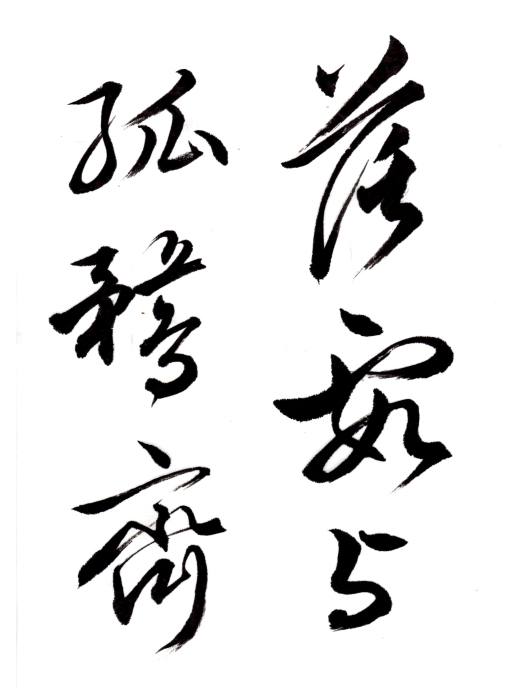 落霞与
孤鹜齊